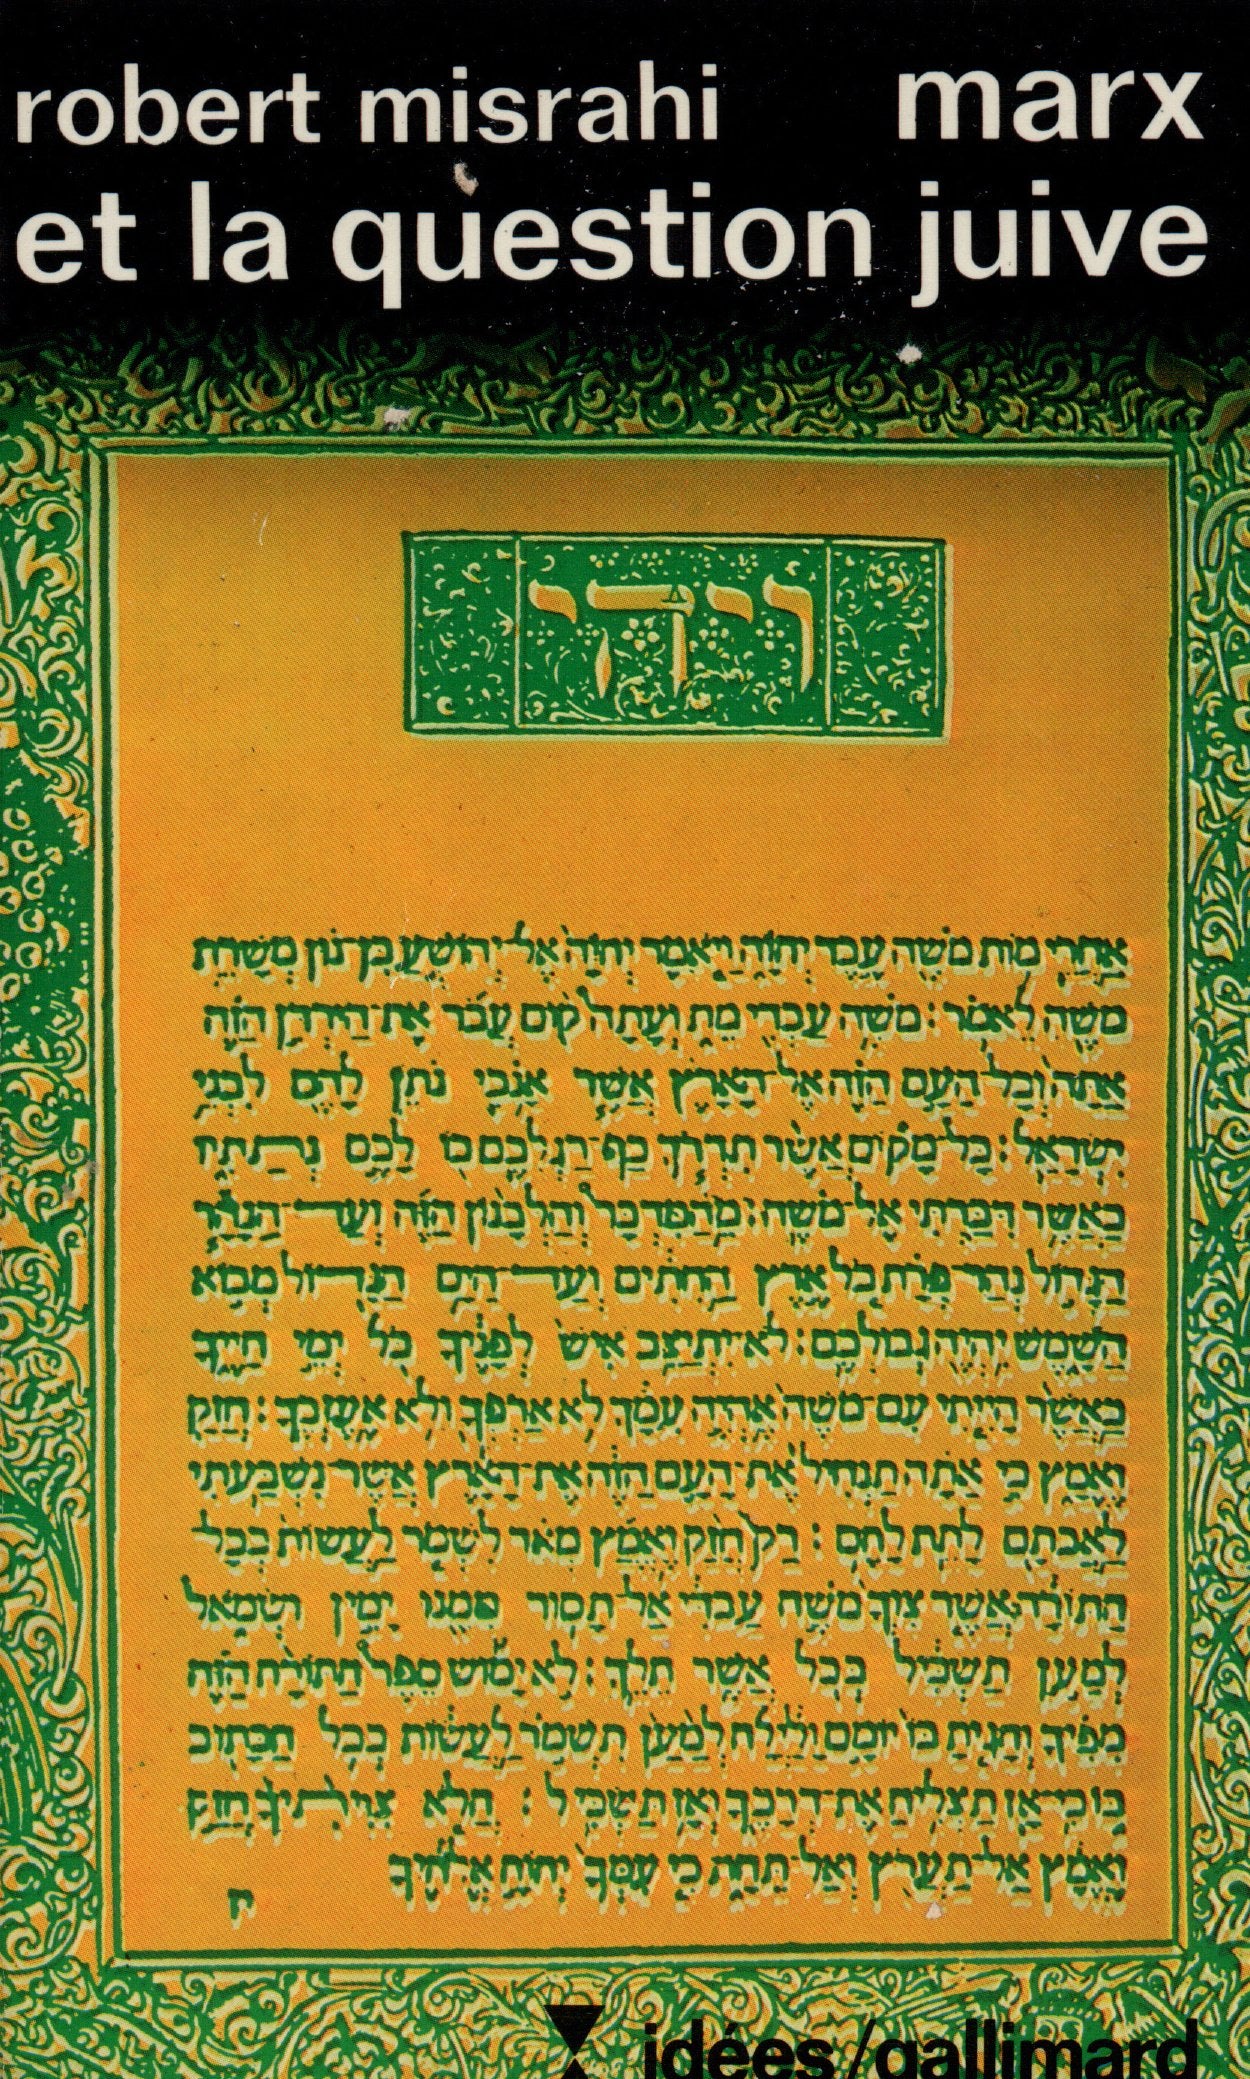 robert misrahi marx
et la question juive
ויהי
אחרי מות משה עבד יהוה ויאמר יהוה אל־יהושע בן־נון משרת
משה לאמר: משה עבדי מת ועתה קום עבר את־הירדן הזה
אתה וכל־העם הזה אל־הארץ אשר אנכי נתן להם לבני
ישראל: כל־מקום אשר תדרך כף־רגלכם בו לכם נתתיו
כאשר דברתי אל־משה: מהמדבר והלבנון הזה ועד־הנהר
הגדול נהר־פרת כל ארץ החתים ועד־הים הגדול מבוא
השמש יהיה גבולכם: לא־יתיצב איש לפניך כל ימי חייך
כאשר הייתי עם־משה אהיה עמך לא ארפך ולא אעזבך: חזק
ואמץ כי אתה תנחיל את־העם הזה את־הארץ אשר נשבעתי
לאבתם לתת להם: רק חזק ואמץ מאד לשמר לעשות ככל־
התורה אשר צוך משה עבדי אל־תסור ממנו ימין ושמאל
למען תשכיל בכל אשר תלך: לא ימוש ספר התורה הזה
מפיך והגית בו יומם ולילה למען תשמר לעשות ככל הכתוב
בו כי־אז תצליח את־דרכך ואז תשכיל: הלא צויתיך חזק
ואמץ אל־תערץ ואל־תחת כי עמך יהוה אלהיך
idées/gallimard